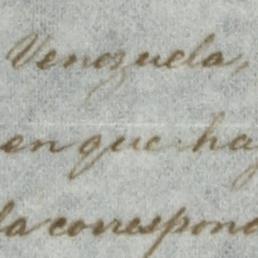 Venezuela,
en que hay
la correspond